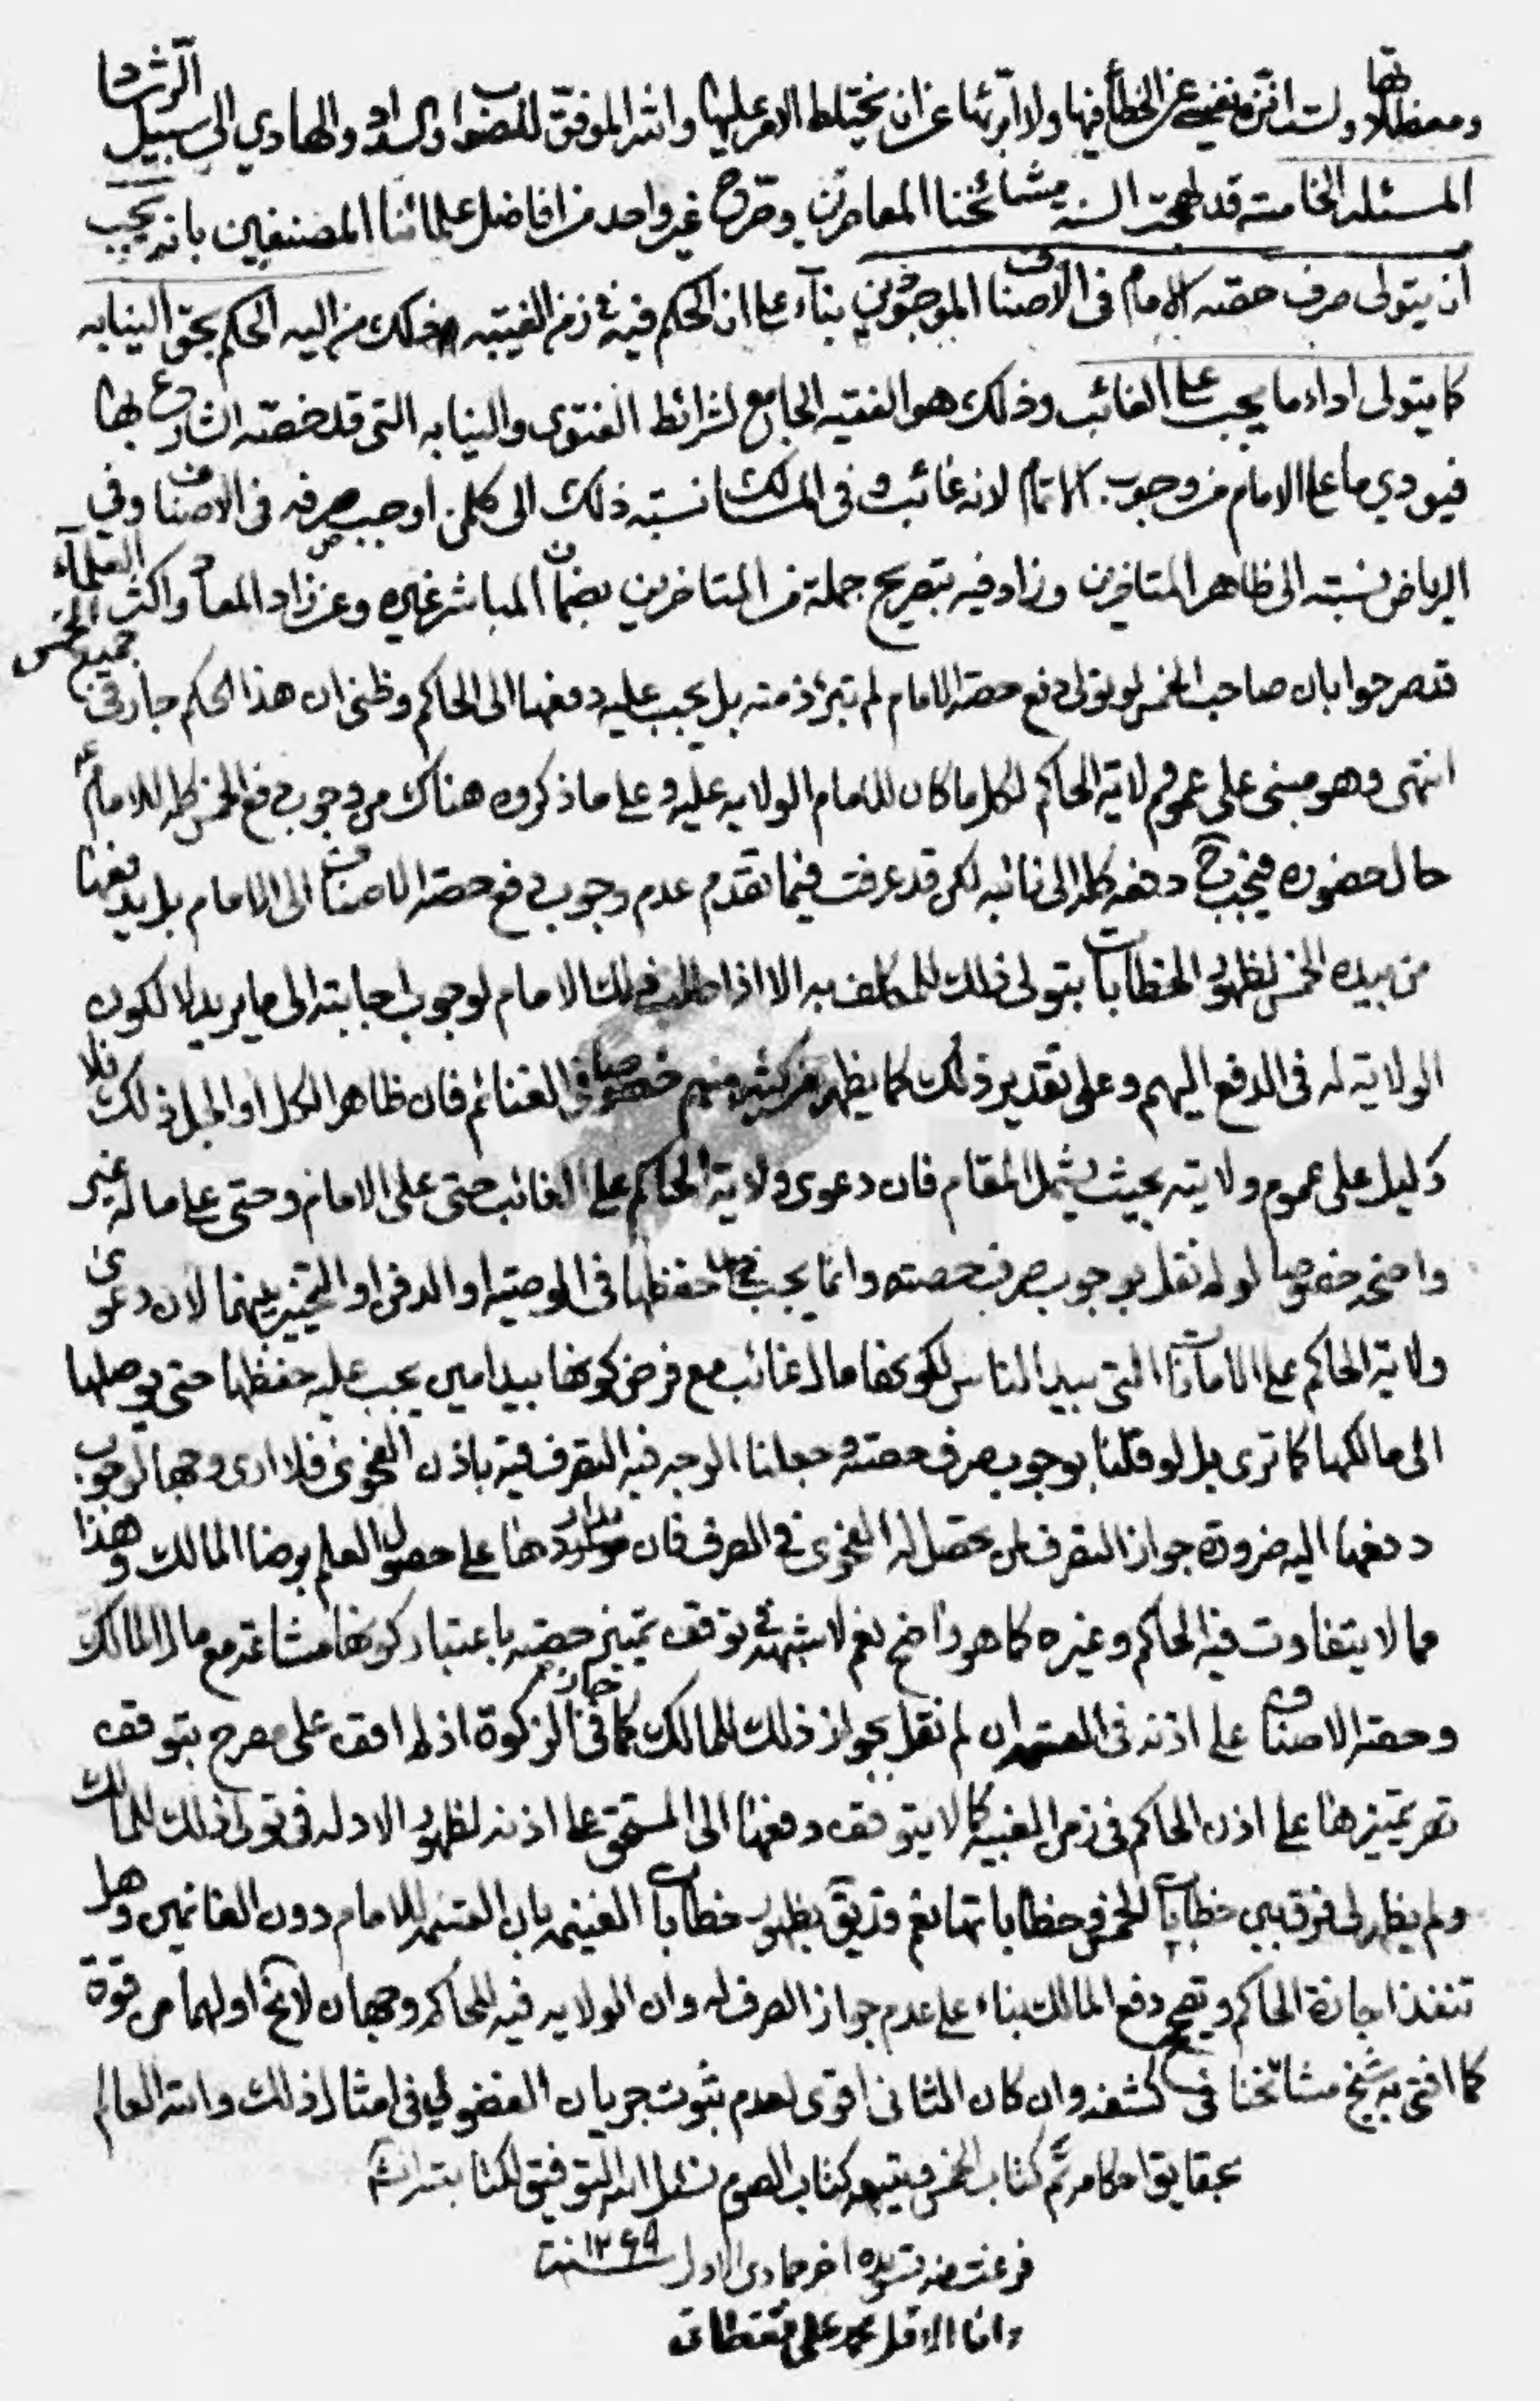 ومعضلاتها ولست انزه نفسي عن الخطأ فيها ولا ابرئها عن ان يختلط الامر عليها والله الموفق للصواب والسداد والهادي الى سبيل الرشاد
المسئلة الخامسة قد لهجت السنة مشائخنا المعاصرين وصرح غير واحد من افاضل علمائنا المصنفين بانه يجب
ان يتولى صرف حصته الامام في الاصناف الموجودين بناء على ان الحكم فيه في زمن الغيبة ذلك من اليه الحكم بحق النيابه
كما يتولى اداء ما يجب على الغائب وذلك هو الفقيه الجامع لشرائط الفتوى والنيابه التي قد خصته الشارع بها
فيودي ما على الامام من وجوب الاتمام لانه غائب و في المسالك نسبته ذلك الى كل من اوجب صرفه في الاصناف وفي
الرياض نسبته الى ظاهر المتاخرين وزاد فيه بتصريح جملة من المتاخرين بضمان المباشر غيره وعن زاد المعاد واكثر العلمآء
قد صرحوا بان صاحب الخمس لو تولى دفع حصة الامام لم تبرء ذمته بل يجب عليه دفعها الى الحاكم وظني ان هذا الحكم جار في جميع الخمس
انتهى وهو مبنى على عموم ولاية الحاكم لكل ما كان للامام الولايه عليه وعلى ما ذكروه هناك من وجوب دفع الخمس كله للامام ع
حال حضوره فيجب ح دفعه كله الى نائبه لكن قد عرفت فيما تقدم عدم وجوب دفع حصة الاصناف الى الامام بل يدفعها
من بيده الخمس لظهور الخطابات بتولى ذلك للمكلف به الا اذا طلب ذلك الامام لوجوب اجابته الى ما يريد لا لكون
الولاية له في الدفع اليهم وعلى تقدير ذلك كما يظهر من كثير منهم خصوصا في الغنائم فان ظاهر الكل او الجل ذلك فلا
دليل على عموم ولايته بحيث يشمل المقام فان دعوى ولاية الحاكم على الغائب حتى على الامام وحتى على ماله غير
واضحه خصوصا لو لم نقل بوجوب صرف حصته وانما يجب ح حفظها في الوصية او الدفن او التخيير بينهما لان دعوى
ولاية الحاكم على الامانات التي بيد الناس لكونها مال غائب مع فرض كونها بيد امين يجب عليه حفظها حتى يوصلها
الى مالكها كما ترى بل لو قلنا بوجوب صرف حصته وجعلنا الوجه فيه التصرف فيه باذن الفحوى فلا ارى وجها لوجوب
دفعها اليه ضرورة جواز التصرف لمن حصل له الفحوى في الصرف فان مدارها على حصول العلم برضا المالك وهذا
مما لا يتفاوت فيه الحاكم وغيره كما هو واضح نعم لا شبهة في توقف تميز حصته باعتبار كونها مشاعة مع مال المالك
وحصة الاصناف على اذنه في القسمة ان لم نقل بجواز ذلك للمالك كما في الزكوة اذ لم اقف على مصرح بتوقف
تميزها على اذن الحاكم في زمن الغيبة كما لا يتوقف دفعها الى المستحق على اذنه لظهور الادله في تولى ذلك للمالك
ولم يظهر لى فرق بين خطابات الخمس وخطاباتها نعم بظهور خطابات الغنيمه بان القسمة للامام دون الغانمين وهل
تنفذ اجازة الحاكم و تصح دفع المالك بناء على عدم جواز الصرف له وان الولايه فيه للحاكم وجهان لا يخ اولهما من قوة
كما افتى به شيخ مشائخنا في كشفه وان كان الثانى اقوى لعدم ثبوت جريان الفضولي في امثال ذلك والله العالم
بحقايق احكامه تم كتاب الخمس ويتبعه كتاب الصوم نسئل الله التوفيق لكتابته
فرغت من تسويده اخر جمادى الاول سنة ١٢٦٩
وانا الاقل محمد علي